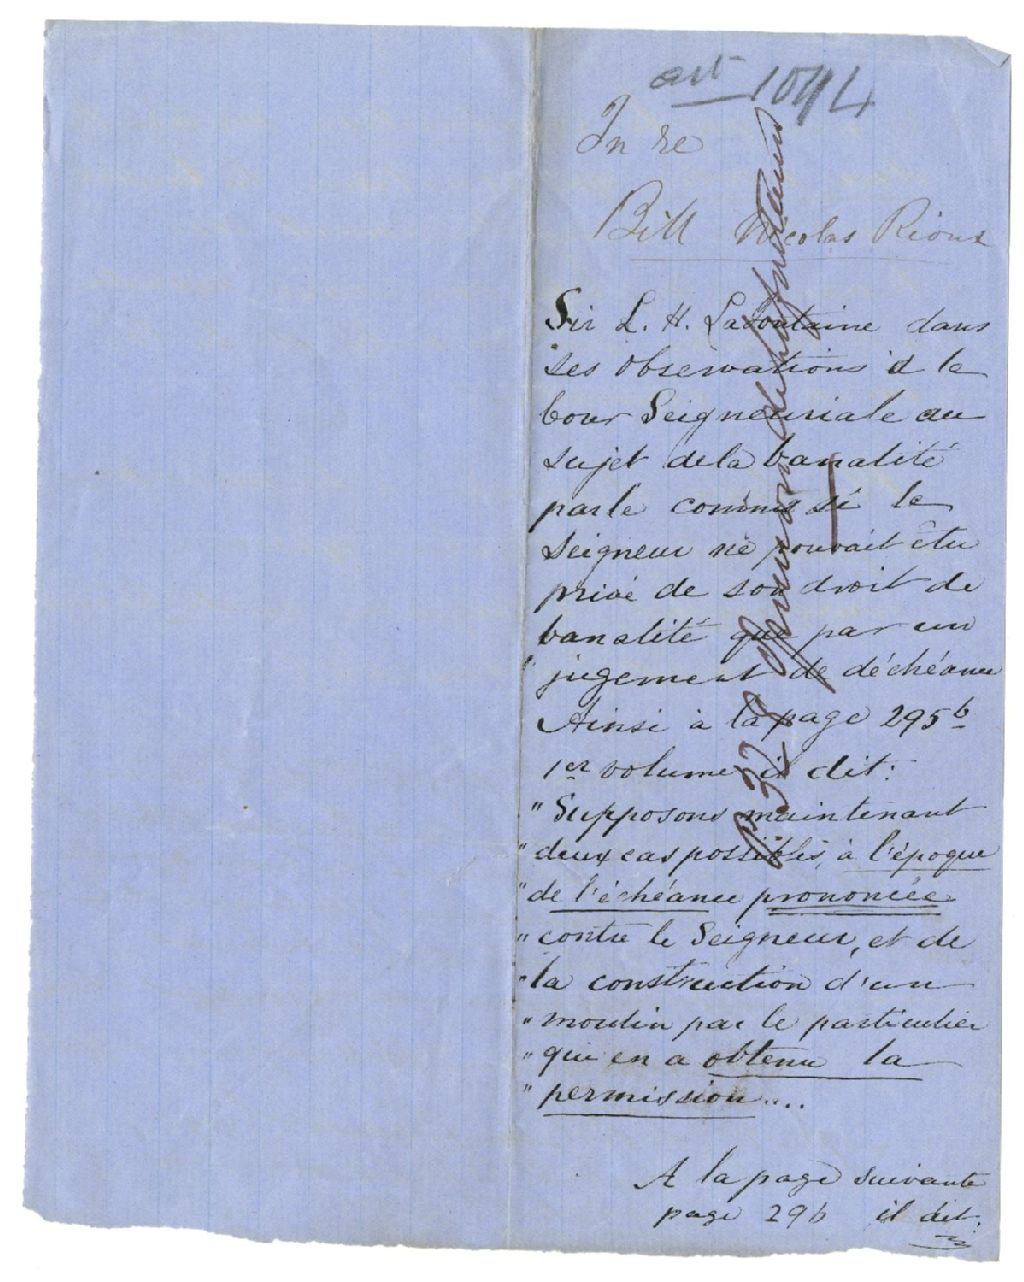 art 1044
In re
Bill Nicolas Rioux
Sir L. H. Lafontaine dans
ses observations à la
Cour Seigneuriale au
sujet de la banalité
parle comme si le
Seigneur ne pouvait être
privé de son droit de
banalité que par un
jugement de déchéance
Ainsi à la page 295 b
1er volume il dit:
"Supposons maintenant
"deux cas possibles, à l'époque
"de l'échéance prononcée
"contre le Seigneur, et de
"la construction d'un
"moulin par le particulier
"qui en a obtenu la
"permission...
A la page suivante
page 296 il dit: